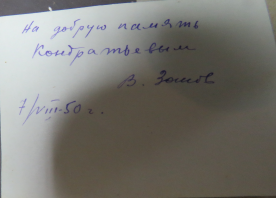 На добрую память
Контратьевым
В.
7/VIII-50 г.